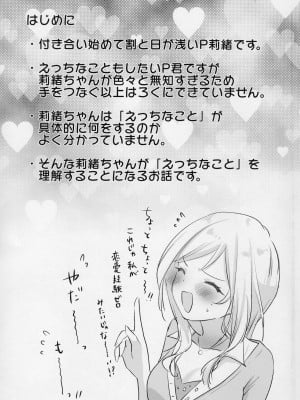 はじめに
・付き合い始めて割と日が浅いP莉緒です。
・えっちなこともしたいP君ですが
莉緒ちゃんが色々と無知すぎるため
手をつなぐ以上はろくにできていません。
・莉緒ちゃんは「えっちなこと」が
具体的に何をするのか
よく分かっていません。
・そんな莉緒ちゃんが「えっちなこと」を
理解することになるお話です。
ちょっとちょっと〜
これじゃ私が
恋愛経験ゼロ
みたいじゃな〜い!?
やだ〜〜
も〜〜